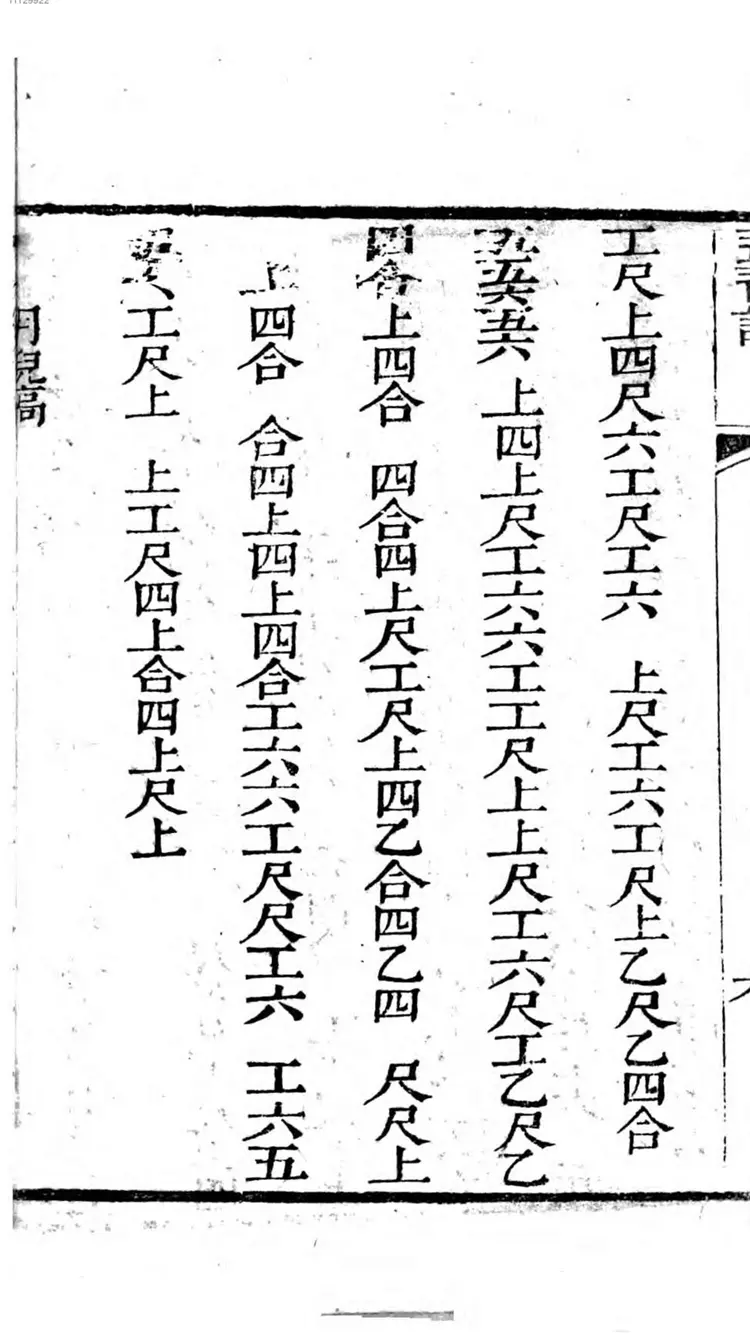 工尺上四尺六工尺工六 上尺工六工尺上乙尺乙四合
五六 上四上尺工六六工工尺上上尺工六尺工乙尺乙
四合上四合 四合四上尺工尺上四乙合四乙四 尺尺上
上四合 合四上四上四合工六六工尺尺工六 工六五
工尺上 上工尺四上合四上尺上